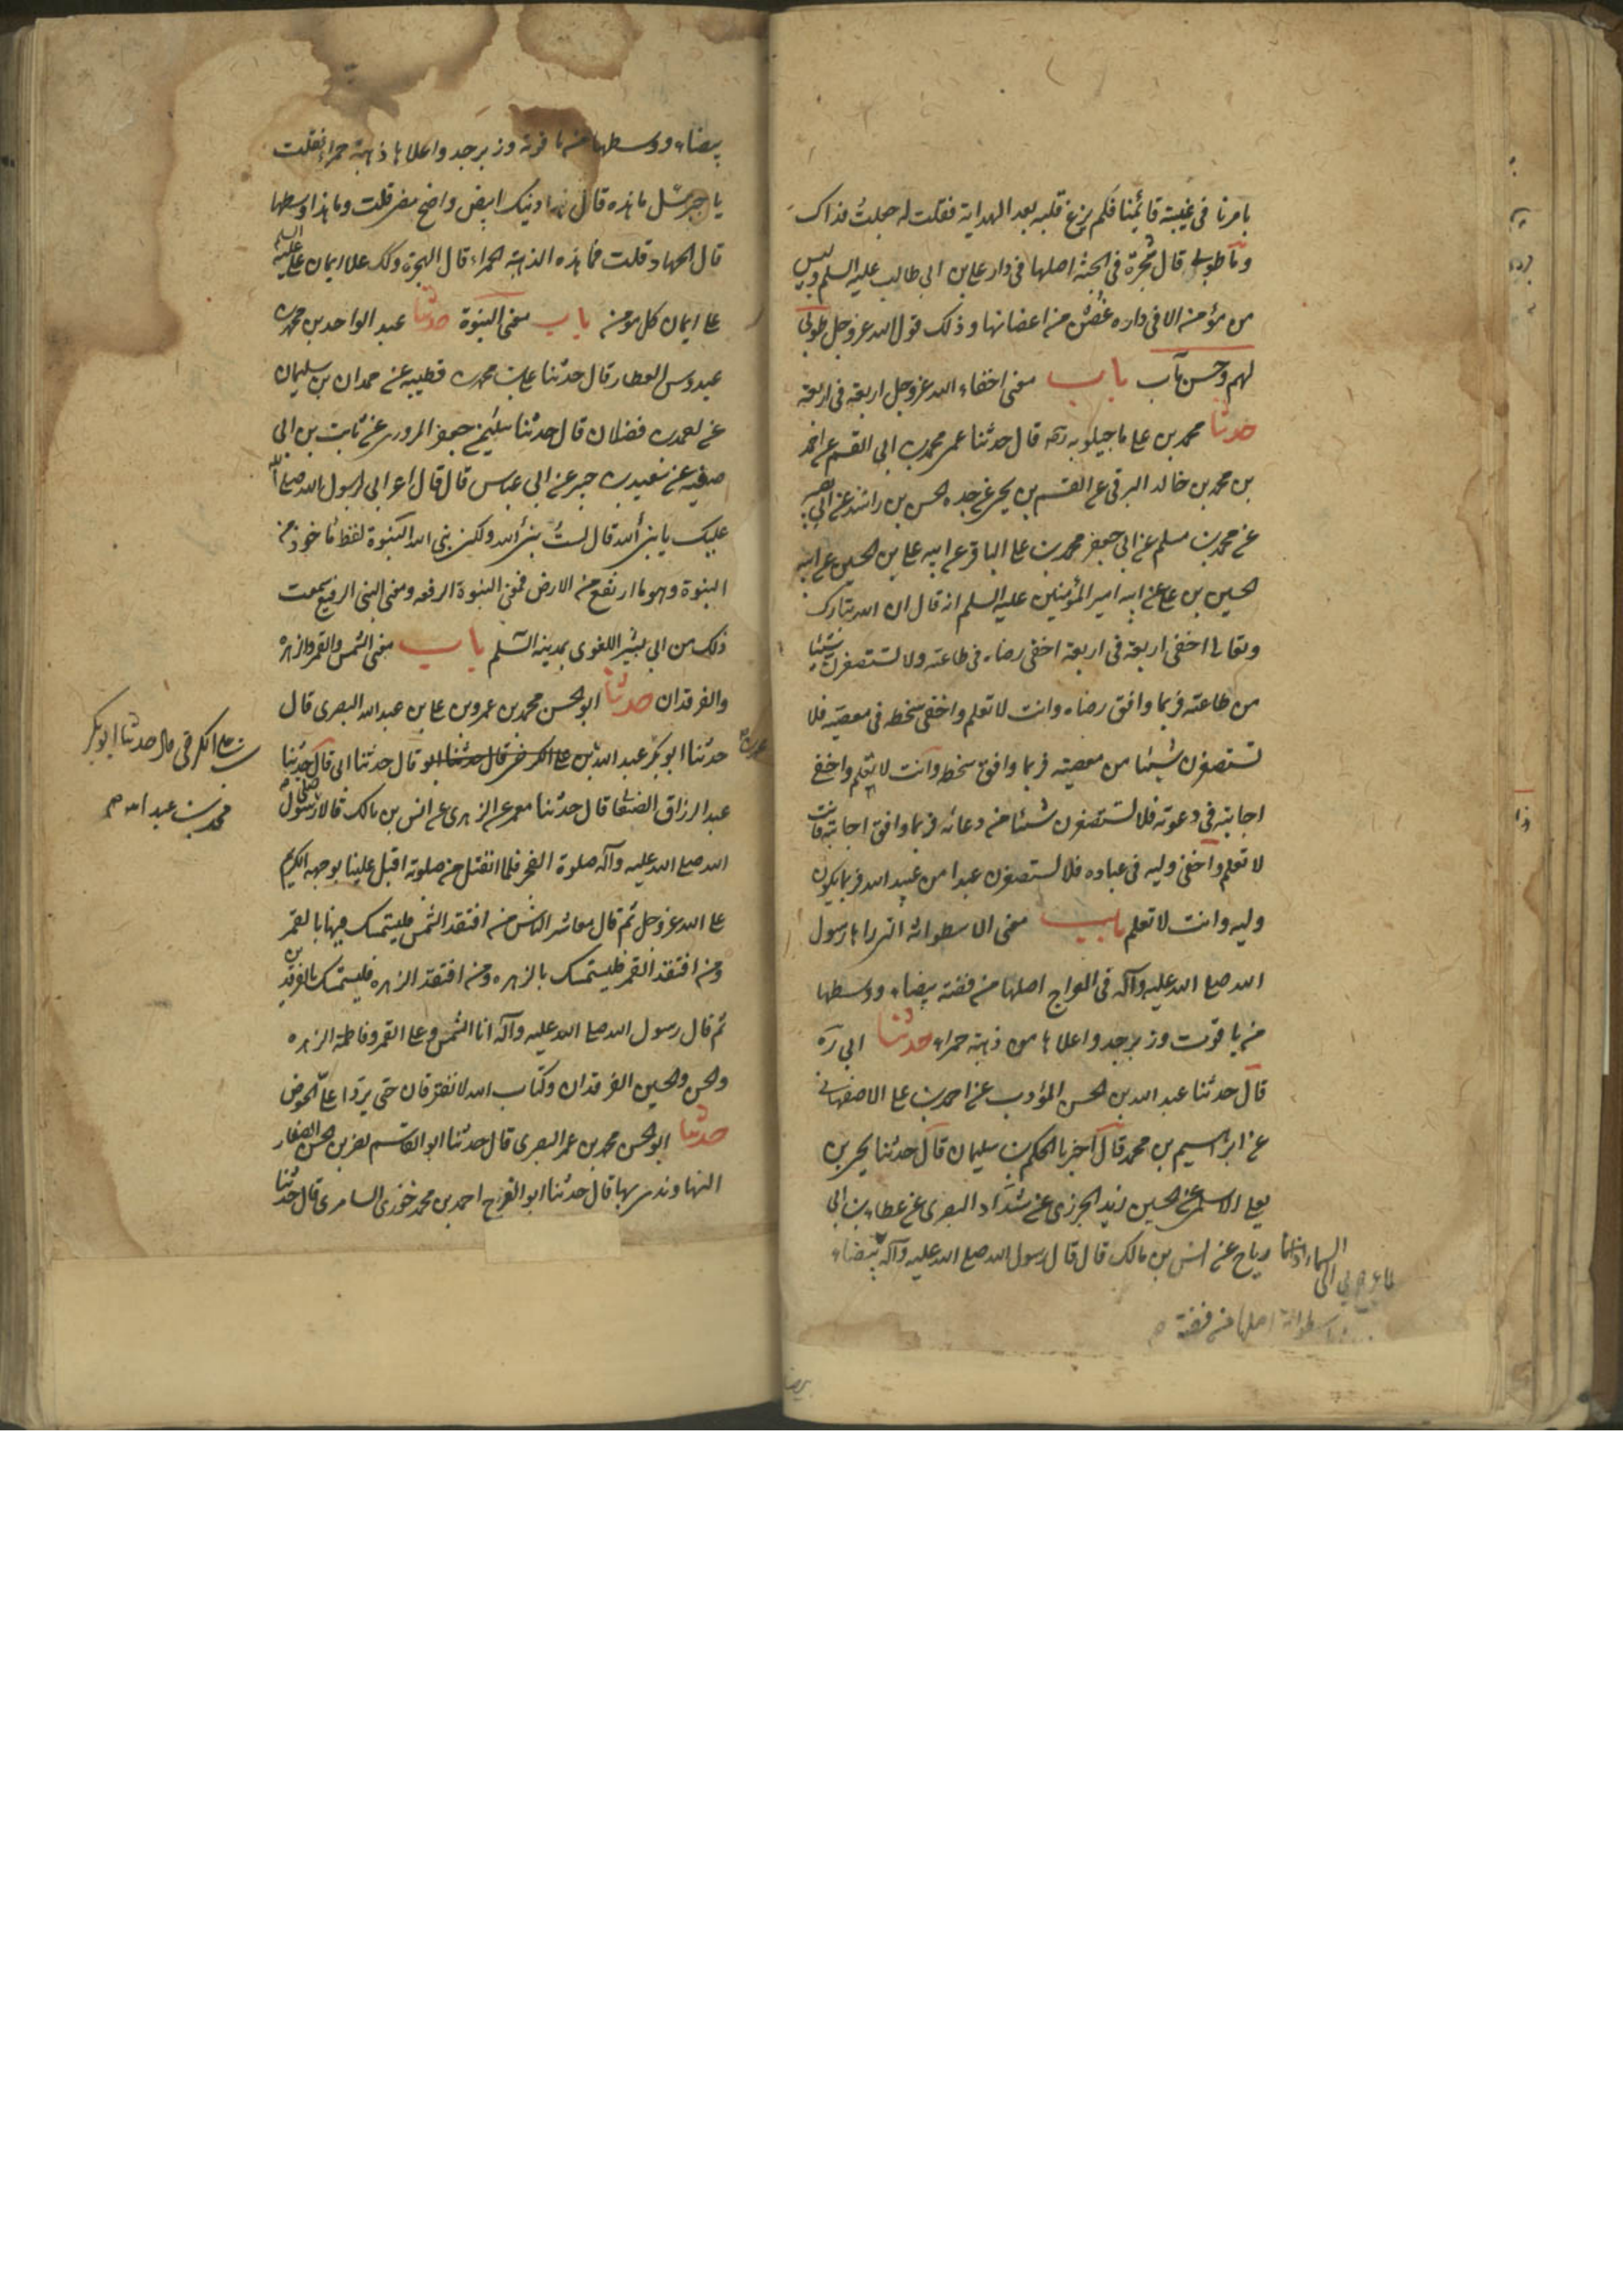 بامرنا في غيبة قائمنا فلم يزغ قلبه بعد الهداية فقلت له جعلت فداك
وما طوبى قال شجرة في الجنة اصلها في دار على بن ابى طالب عليه السلم وليس
من مؤمن الا في داره غصن من اغصانها وذلك قول الله عز وجل طوبى
لهم وحسن مآب باب معنى اخفاء الله عز وجل اربعة في اربعة
حدثنا محمد بن على ماجيلويه ره قال حدثنا عمى محمد بن ابى القسم عن احمد
بن محمد بن خالد البرقي عن القسم بن يحيى عن جده الحسن بن راشد عن ابى بصير
عن محمد بن مسلم عن ابى جعفر محمد بن على الباقر عن ابيه على بن الحسين عن ابيه
الحسين بن على عن ابيه امير المؤمنين عليه السلم انه قال ان الله تبارك
وتعالى اخفى اربعة في اربعة اخفى رضاه في طاعته ولا تستصغرن شيئا
من طاعته فربما وافق رضاه وانت لا تعلم واخفى سخطه في معصيته فلا
تستصغرن شيئا من معصيته فربما وافق سخطه وانت لا تعلم واخفى
اجابته في دعوته فلا تستصغرن شيئا من دعائه فربما وافق اجابته وانت
لا تعلم واخفى وليه في عباده فلا تستصغرن عبدا من عبيد الله فربما يكون
وليه وانت لا تعلم باب معنى الاسطوانة التي رآها رسول
الله صلى الله عليه وآله في المعراج اصلها من فضة بيضاء ووسطها
من ياقوت وزبرجد واعلاها من ذهبة حمراء حدثنا ابى ره
قال حدثنا عبد الله بن الحسن المؤدب عن احمد بن على الاصفهاني
عن ابراهيم بن محمد قال اخبرنا الحكم بن سليمان قال حدثنا يحيى بن
يعلى الاسلمى عن الحسين زيد الجزرى عن شداد البصرى عن عطاء بن ابى
رياح عن انس بن مالك قال قال رسول الله صلى الله عليه وآله بيضاء
لما عرج بى الى السماء اذا انا
اسطوانة اصلها من فضة
بيضاء ووسطها من ياقوتة وزبرجد واعلاها ذهبة حمراء فقلت
يا جبرئيل ما هذه قال هذا دينك ابيض واضح مضى قلت وما هذا وسطها
قال الجهاد قلت فما هذه الذهبة الحمراء قال الهجرة ولك علا ايمان على عليه السلم
على ايمان كل مومن باب معنى النبوة حدثنا عبد الواحد بن محمد بن
عبدوس العطار قال حدثنا على بن محمد بن قطيبه عن حمدان بن سليمان
عن فضلان قال حدثنا سليمن جعفر المروزى عن ثابت بن ابى
صفيه عن سعيد بن جبير عن ابى عباس قال قال اعرابى لرسول الله صلى الله
عليك يا نبىء الله قال لست بنبىء الله ولكن نبى الله النبوة لفظ ماخوذ من
النبوة وهو ما ارتفع من الارض فمعنى النبوة الرفعه ومعنى النبى الرفيع سمعت
ذلك من ابى بشر اللغوى بمدينة السلم باب معنى الشمس والقمر والزهرة
والفرقدان حدثنا ابو الحسن محمد بن عمرو بن على بن عبد الله البصرى قال
حدثنا ابو بكر عبد الله بن على الكرخى قال حدثنا ابو قال حدثنا ابى قال حدثنا
بن على الكرخى قال حدثنا ابو بكر
محمد بن عبد الله صح
عبد الرزاق الصنعانى قال حدثنا معمر عن الزهرى عن انس بن مالك قال صلى رسول
الله صلى الله عليه وآله صلوة الفجر فلما انفتل من صلوته اقبل علينا بوجهه الكريم
على الله عز وجل ثم قال معاشر الناس من افتقد الشمس فليتمسك بالقمر
ومن افتقد القمر فليستمسك بالزهره ومن افتقد الزهره فليستمسك بالفرقدين
ثم قال رسول الله صلى الله عليه وآله انا الشمس وعلى القمر وفاطمة الزهره
والحسن والحسين الفرقدان وكتاب الله لا تفترقان حتى يردا على الحوض
حدثنا ابو الحسن محمد بن عمر البصرى قال حدثنا ابو القاسم نصر بن الحسن الصفار
النهاوندى بها قال حدثنا ابو الفرج احمد بن محمد خوزى السامرى قال حدثنا